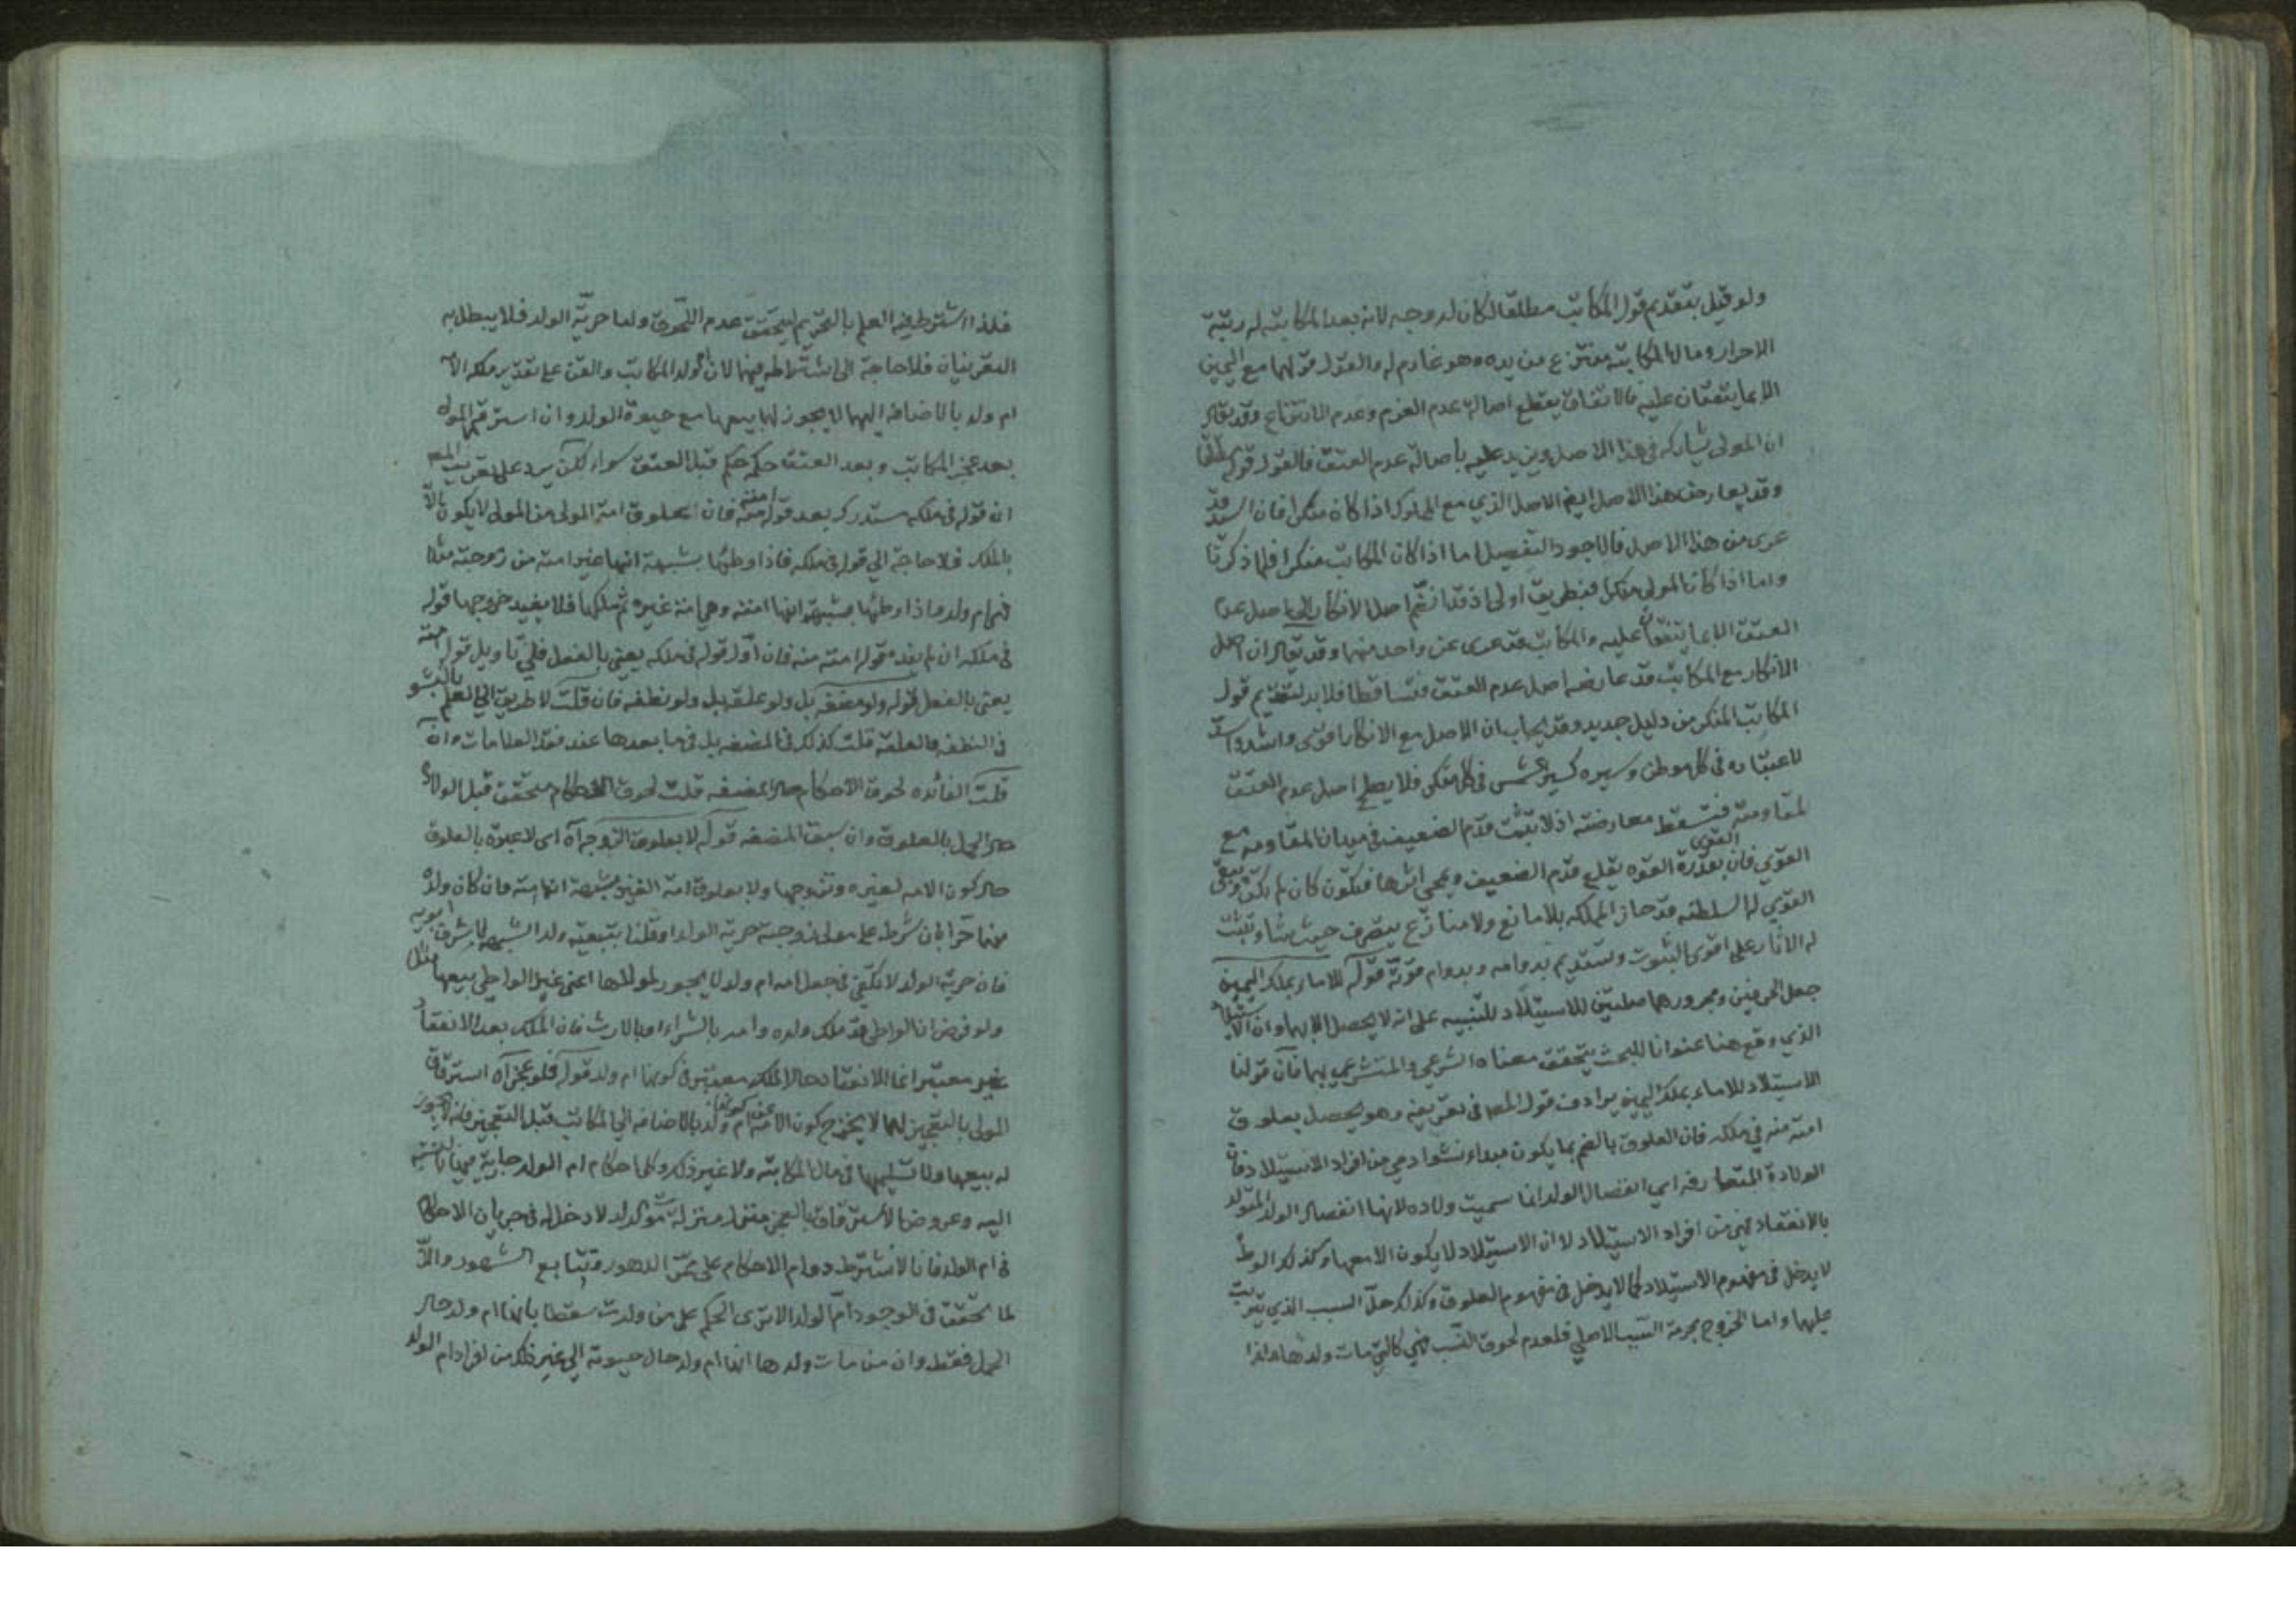 ولو قيل بتقديم قول المكاتب مطلقا لكان له وجه لانه بعد المكاتبه له رتبة
الاحرار ومال المكاتبة منتزع من يده وهو غارم له والقول قولهما مع اليمين
الا بما يتفقان عليه فالاتفاق يقطع اصالة عدم الغرم وعدم الانتزاع وقد يقال
ان المولى يشاركه في هذا الاصل ويزيد عليه باصالة عدم العتق فالقول قوله مطلقا
وقد يعارض هذا الاصل ايضا الاصل الذي مع المملوك اذا كان منكرا فان السيد قد
عرى من هذا الاصل فالاجود التفصيل اما اذا كان المكاتب منكرا فلما ذكرنا
واما اذا كان المولى منكرا فبطريق اولى اذ قد انضم اصل الانكار الى اصل عدم
العتق الا بما يتفقان عليه والمكاتب قد عرى عن واحد منهما وقد يقال ان اصل
الانكار مع المكاتب قد عارضه اصل عدم العتق فتساقطا فلا بد لتقديم قول
المكاتب المنكر من دليل جديد وقد يجاب ان الاصل مع الانكار اقوى واشد واسد
لاعتباره في كل موطن وسيره كسير الشمس في كل فلك فلا يصلح اصل عدم العتق
لمقاومته فتسقط معارضته اذ لا يثبت قدم الضعيف في ميدان المقاومه مع
القوي فان بقدرة القوه يقلع قدم الضعيف ويمحي اثرها فتكون كان لم يكن ويبقى القوى
القوي له السلطنه قد حاز المملكه بلا مانع ولا منازع يتصرف حيث شاء وتثبت
له الاثار على اقوى الثبوت وتستديم بدوامه وبدوام قوته قوله للاماء بملك اليمين
جعل الحرفين ومجرورهما صلتين للاستيلاد للتنبيه على انه لا يحصل الا بهما وان الاستيلاد
الذي وقع هنا عنوانا للبحث يتحقق معناه الشرعي والمتشرعي بهما فان قولنا
الاستيلاد للاماء بملك اليمين يرادف قول المصا في تعريفه وهو يحصل بعلوق
امته منه في ملكه فان العلوق بالضم بما يكون مبداء نشو ادمي من افراد الاستيلاد فان
الولادة المتعارفه اي انفصال الولد انما سميت ولاده لانها انفصال الولد المتولد
بالانعقاد فهي من افراد الاستيلاد لا ان الاستيلاد لا يكون الا معها وكذلك الوطئ
لا يدخل في مفهوم الاستيلاد كما لا يدخل في مفهوم العلوق وكذلك حل السبب الذي يترتب
عليهما واما الخروج بحرمة السبب الاصلي فلعدم لحوق النسب فهي كالتي مات ولدها
فلذا اشترط فيه العلم بالتحريم ليتحقق عدم اللحوق ولما حرية الولد فلا يبطل به
التعريفان فلا حاجة الى اشتراطه فيهما لان ام ولد المكاتب والقن على تقدير ملكه الامه
ام ولد بالاضافه اليهما لا يجوز لهما بيعها مع حيوة الولد وان استرقهم المولى
بعد عجز المكاتب وبعد العتق حكمه حكم قبل العتق سواء لكن يرد على تعريف المصا
ان قوله في ملكه مستدرك بعد قوله امته منه فان علوق امة المولى من المولى لا يكون الا
بالملك فلا حاجة الى قوله في ملكه فاذا وطئها بشبهة انها غير امته من زوجته مثلا
فهي ام ولد واذا وطئها بشبهة انها امته وهي امة غيره ثم ملكها فلا يفيد خروجها قوله
في ملكه ان لم يفده قوله امته منه فان اول قوله في ملكه يعني بالفعل فلي تاويل قوله امته
يعني بالفعل قوله ولو مضغه بل ولو علقه بل ولو نطفه فان قلت لا طريق الى العلم بالنشو
في النطفه والعلقه قلت كذلك في المضغه بل في ما بعدها عند فقد العلامات وان
قلت الفائده لحوق الاحكام حال المضغه قلت لحوق الاحكام متحقق قبل الولادة
حال الحمل بالعلوق وان سبق المضغه قوله لا بعلوق الزوجه اه اى لا عبرة بالعلوق
حال كون الامه لغيره وتزوجها ولا بعلوق امة الغير بشبهة انها امته فان كان ولده
منها حرا بان شرط على مولى زوجته حرية الولد او قلنا بتبعية ولد الشبهه لاشرف ابويه
فان حرية الولد لا تكفي في جعل امه ام ولد لا يجوز لمولاها اعني غير الواطى بيعها مثلا
ولو فرض ان الواطى قد ملك ولده وامه بالشراء او بالارث فان الملك بعد الانعقاد
غير معتبر انما الانعقاد حال الملك معتبر في كونها ام ولد قوله فلو عجز اه استرقاق
المولى بالتعجيز لهما لا يخرج كون الامه عن كونها ام ولد بالاضافه الى المكاتب قبل التعجيز فانه لا يجوز
له بيعها ولا تسليمها في مال المكاتبه ولا غير ذلك وكلما احكام ام الولد جارية فيها بالنسبة
اليه وعروض الاسترقاق بالعجز منزلة موت الولد لا دخل له في جريان الاحكام
في ام الولد فانا لا نشترط دوام الاحكام على مر الدهور وتتابع الشهور والا
لما تحقق في الوجود ام الولد الا ترى الحكم على من ولدت سقطا بانها ام ولد حال
الحمل فقط وان من مات ولدها انها ام ولد حال حيوته الى غير ذلك من افراد ام الولد